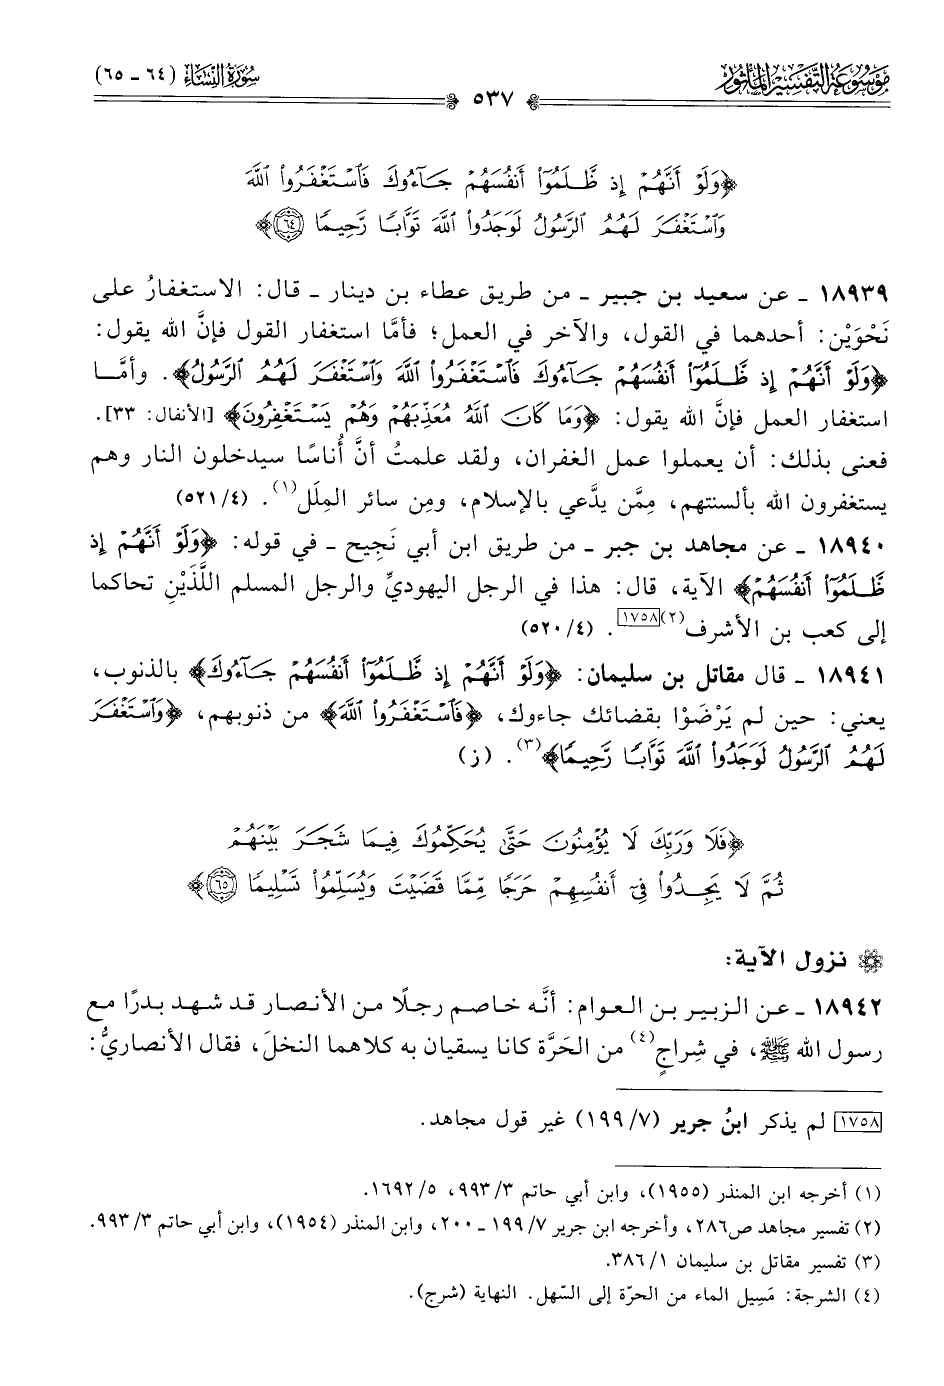 موسوعة التفسير المأثور
٥٣٧
سورة النساء (٦٤ - ٦٥)
﴿وَلَوْ أَنَّهُمْ إِذ ظَّلَمُوٓا۟ أَنفُسَهُمْ جَآءُوكَ فَٱسْتَغْفَرُوا۟ ٱللَّهَ
وَٱسْتَغْفَرَ لَهُمُ ٱلرَّسُولُ لَوَجَدُوا۟ ٱللَّهَ تَوَّابًا رَّحِيمًا ٦٤﴾
١٨٩٣٩ - عن سعيد بن جبير - من طريق عطاء بن دينار - قال: الاستغفارُ على
نَحْوَيْن: أحدهما في القول، والآخر في العمل؛ فأمَّا استغفار القول فإنَّ الله يقول:
﴿وَلَوْ أَنَّهُمْ إِذ ظَّلَمُوٓا۟ أَنفُسَهُمْ جَآءُوكَ فَٱسْتَغْفَرُوا۟ ٱللَّهَ وَٱسْتَغْفَرَ لَهُمُ ٱلرَّسُولُ﴾. وأمَّا
استغفار العمل فإنَّ الله يقول: ﴿وَمَا كَانَ ٱللَّهُ مُعَذِّبَهُمْ وَهُمْ يَسْتَغْفِرُونَ﴾ [الأنفال: ٣٣].
فعنى بذلك: أن يعملوا عمل الغفران، ولقد علمتُ أنَّ أُناسًا سيدخلون النار وهم
يستغفرون الله بألسنتهم، مِمَّن يدَّعي بالإسلام، ومِن سائر المِلَل(١). (٤/٥٢١)
١٨٩٤٠ - عن مجاهد بن جبر - من طريق ابن أبي نَجِيح - في قوله: ﴿وَلَوْ أَنَّهُمْ إِذ
ظَّلَمُوٓا۟ أَنفُسَهُمْ﴾ الآية، قال: هذا في الرجل اليهوديِّ والرجل المسلم اللَّذَيْنِ تحاكما
إلى كعب بن الأشرف(٢)[١٧٥٨]. (٤/٥٢٠)
١٨٩٤١ - قال مقاتل بن سليمان: ﴿وَلَوْ أَنَّهُمْ إِذ ظَّلَمُوٓا۟ أَنفُسَهُمْ جَآءُوكَ﴾ بالذنوب،
يعني: حين لم يَرْضَوْا بقضائك جاءوك، ﴿فَٱسْتَغْفَرُوا۟ ٱللَّهَ﴾ من ذنوبهم، ﴿وَٱسْتَغْفَرَ
لَهُمُ ٱلرَّسُولُ لَوَجَدُوا۟ ٱللَّهَ تَوَّابًا رَّحِيمًا﴾(٣). (ز)
﴿فَلَا وَرَبِّكَ لَا يُؤْمِنُونَ حَتَّىٰ يُحَكِّمُوكَ فِيمَا شَجَرَ بَيْنَهُمْ
ثُمَّ لَا يَجِدُوا۟ فِىٓ أَنفُسِهِمْ حَرَجًا مِّمَّا قَضَيْتَ وَيُسَلِّمُوا۟ تَسْلِيمًا ٦٥﴾
نزول الآية:
١٨٩٤٢ - عن الزبير بن العوام: أنَّه خاصم رجلًا من الأنصار قد شهد بدرًا مع
رسول الله ﷺ، في شِراجٍ(٤) من الحَرَّة كانا يسقيان به كلاهما النخلَ، فقال الأنصاريُّ:
[١٧٥٨] لم يذكر ابنُ جرير (٧/١٩٩) غير قول مجاهد.
(١) أخرجه ابن المنذر (١٩٥٥)، وابن أبي حاتم ٣/٩٩٣، ٥/١٦٩٢.
(٢) تفسير مجاهد ص٢٨٦، وأخرجه ابن جرير ٧/١٩٩ - ٢٠٠، وابن المنذر (١٩٥٤)، وابن أبي حاتم ٣/٩٩٣.
(٣) تفسير مقاتل بن سليمان ١/٣٨٦.
(٤) الشرجة: مَسِيل الماء من الحرّة إلى السّهل. النهاية (شرج).